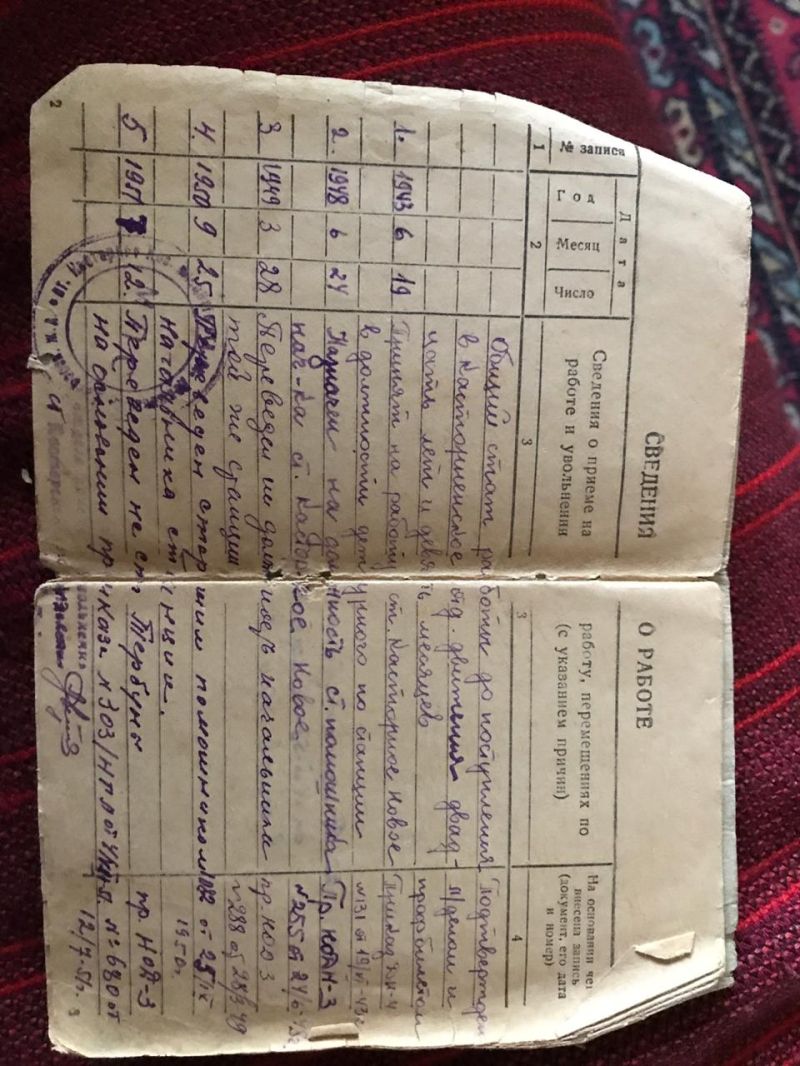 СВЕДЕНИЯ О РАБОТЕ
№ записи Дата Сведения о приеме на работу, перемещениях по На основании чег
Год Месяц Число работе и увольнении (с указанием причин) внесена запись (документ, его дата и номер)
1 2 3 3 4
Общий стаж работы до поступления Подтвержден
в Касторненское отд. движения двад- л/делом и
цать лет и девять месяцев профбилетом
1. 1943 6 19 Принят на работу ст. Касторное Новое Приказ
в должности дежурного по станции №131 от 19/VI-43г
2. 1948 6 24 Назначен на должность ст. помошника Пр.
нач-ка ст. Касторное Новое №255 от 24/6-48г
3 1949 3 28 Переведен на должность начальника пр. НОД 3
той же станции №288 от 28/3 49
4. 1950 9 25 Переведен старшим помошником от 25/IX
начальника станции. 1950г.
5 1951 7 12. Переведен на ст. Тербуны пр НОД-3
на основании приказа №303/НГЛ от №680 от
12/7-51г.
2 3